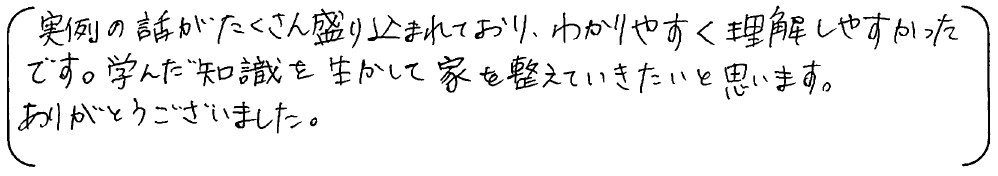 実例の話がたくさん盛り込まれており、わかりやすく理解しやすかった
です。学んだ知識を生かして家を整えていきたいと思います。
ありがとうございました。